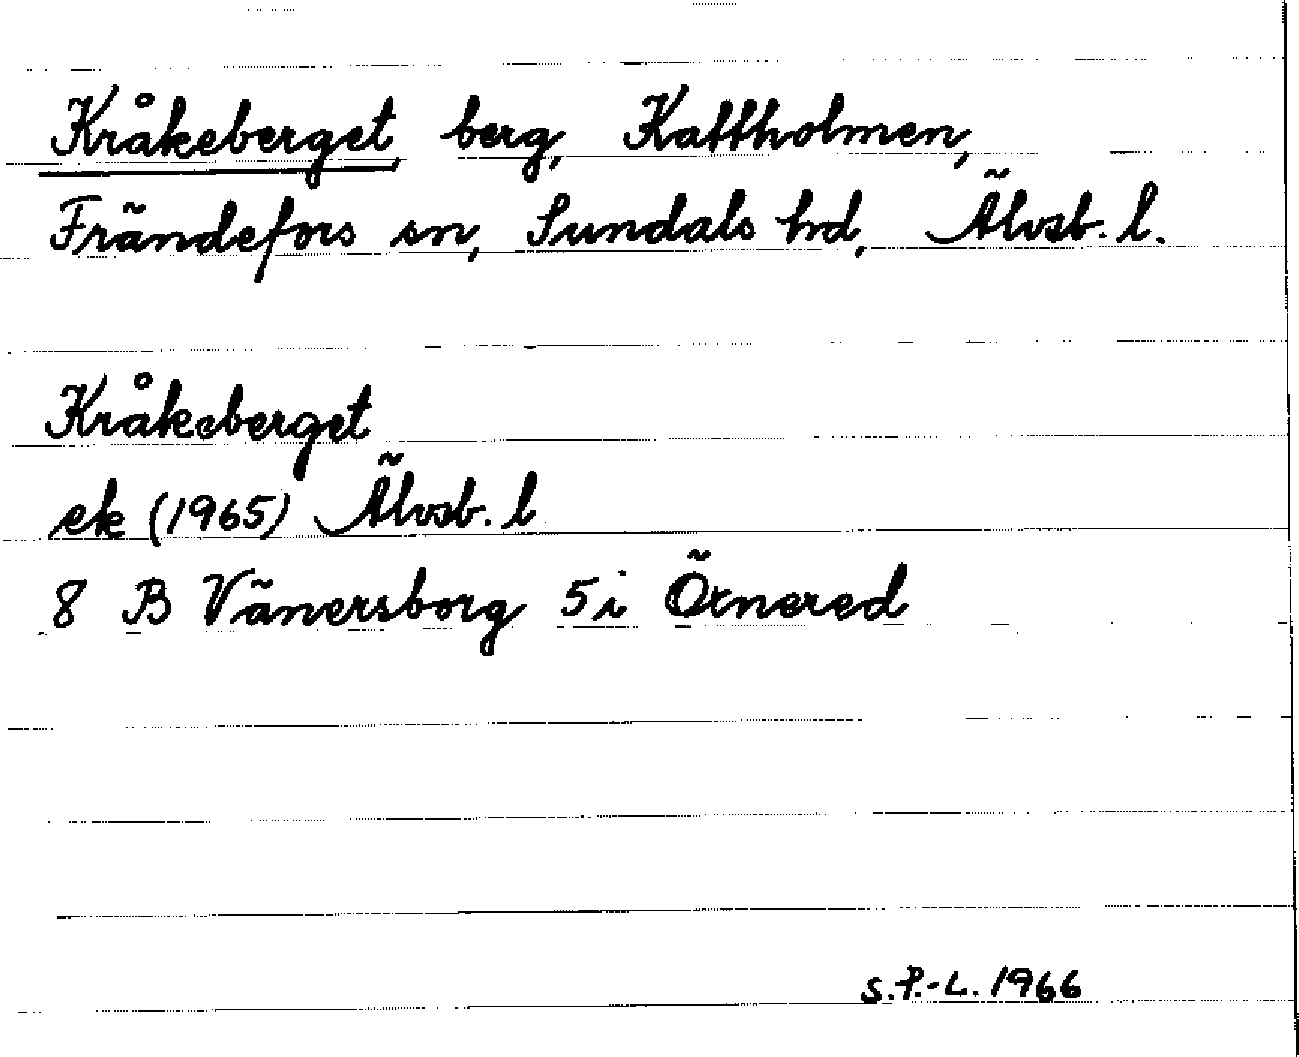 Kråkeberget, berg, Kattholmen,
Frändefors sn, Sundals hd, Älvsb. l.
Kråkeberget
ek (1965) Älvsb. l
8 B Vänersborg 5i Örnered
S.P.-L. 1966